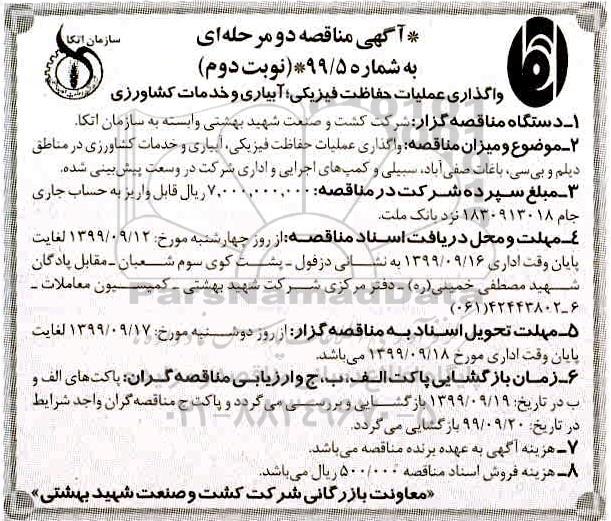 سازمان اتکا
*آگهی مناقصه دو مرحله‌ای
به شماره ۹۹/۵*(نوبت دوم)
واگذاری عملیات حفاظت فیزیکی؛ آبیاری و خدمات کشاورزی
۱ـ دستگاه مناقصه گزار: شرکت کشت و صنعت شهید بهشتی وابسته به سازمان اتکا.
۲ـ موضوع و میزان مناقصه: واگذاری عملیات حفاظت فیزیکی، آبیاری و خدمات کشاورزی در مناطق
دیلم و بی‌سی، باغات صفی‌آباد، سبیلی و کمپ‌های اجرایی و اداری شرکت در وسعت پیش‌بینی شده.
۳ـ مبلغ سپرده شرکت در مناقصه: ۷,۰۰۰,۰۰۰,۰۰۰ ریال قابل واریز به حساب جاری
جام ۱۸۳۰۹۱۳۰۱۸ نزد بانک ملت.
۴ـ مهلت و محل دریافت اسناد مناقصه: از روز چهارشنبه مورخ: ۱۳۹۹/۰۹/۱۲ لغایت
پایان وقت اداری ۱۳۹۹/۰۹/۱۶ به نشانی دزفول ـ پشت کوی سوم شعبان ـ مقابل پادگان
شهید مصطفی خمینی(ره) ـ دفتر مرکزی شرکت شهید بهشتی ـ کمیسیون معاملات ـ
۶ـ۴۲۴۴۳۸۰۲(۰۶۱)
ParsNamadData
۵ـ مهلت تحویل اسناد به مناقصه گزار: از روز دوشنبه مورخ: ۱۳۹۹/۰۹/۱۷ لغایت
پایان وقت اداری مورخ ۱۳۹۹/۰۹/۱۸ می‌باشد.
۶ـ زمان بازگشایی پاکت الف، ب، ج و ارزیابی مناقصه گران: پاکت‌های الف و
ب در تاریخ: ۱۳۹۹/۰۹/۱۹ بازگشایی و بررسی می‌گردد و پاکت ج مناقصه‌گران واجد شرایط
در تاریخ: ۹۹/۰۹/۲۰ بازگشایی می‌گردد.
۰۲۱-۸۸۳۴۹۶۷۰-۵
۷ـ هزینه آگهی به عهده برنده مناقصه می‌باشد.
۸ـ هزینه فروش اسناد مناقصه ۵۰۰/۰۰۰ ریال می‌باشد.
«معاونت بازرگانی شرکت کشت و صنعت شهید بهشتی»